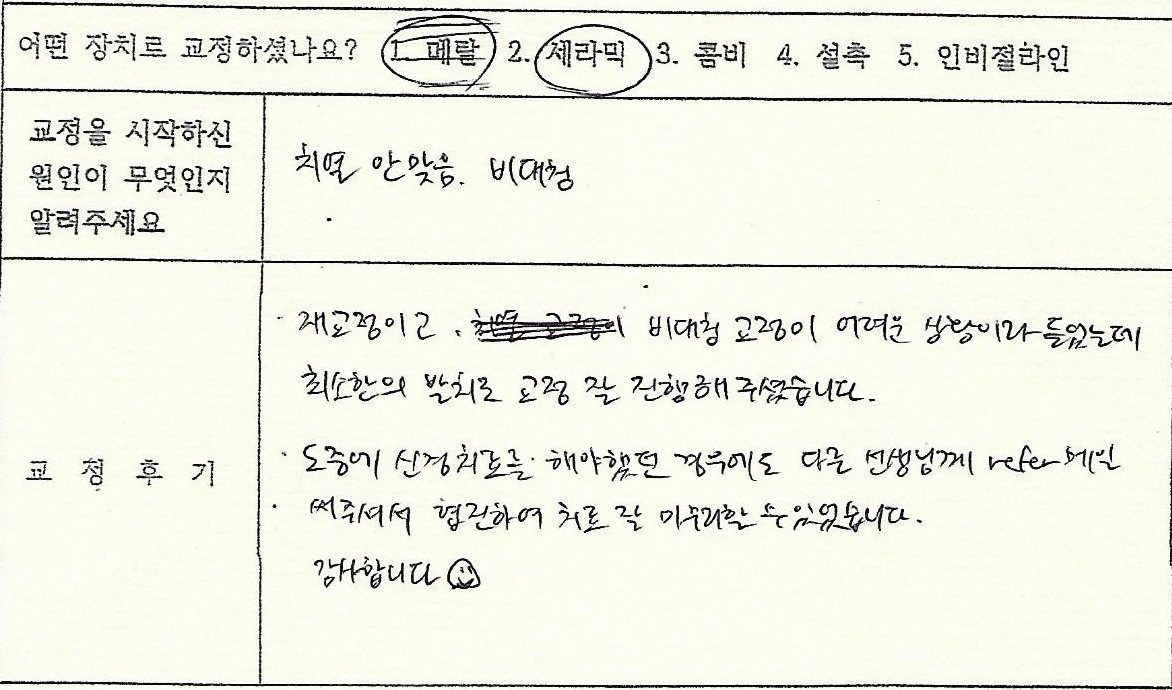 어떤 장치로 교정하셨나요? 1. 메탈 2. 세라믹 3. 콤비 4. 설측 5. 인비절라인
교정을 시작하신
원인이 무엇인지
알려주세요
치열 안맞음. 비대칭
교 정 후 기
· 재교정이고, 비대칭 교정이 어려운 상황이라 들었는데
최소한의 발치로 교정 잘 진행해 주셨습니다.
· 도중에 신경치료를 해야했던 경우에도 다른 선생님께 refer 메일
써주셔서 협진하여 치료 잘 마무리할 수 있었습니다.
감사합니다